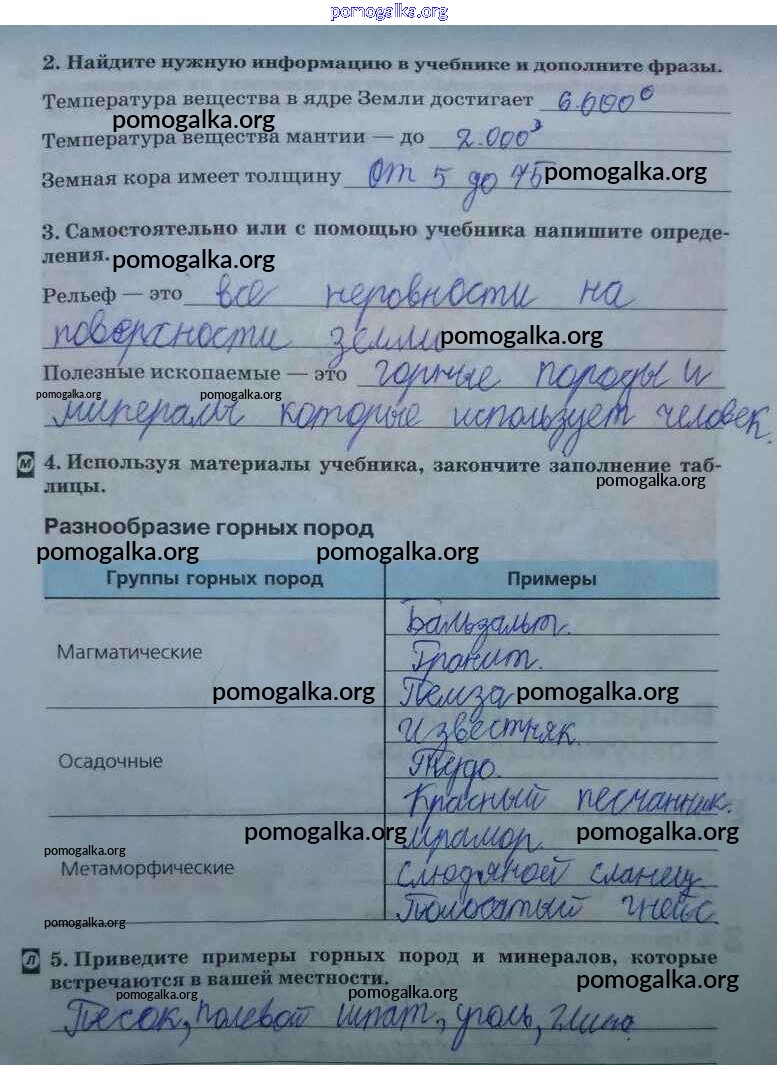 pomogalka.org
2. Найдите нужную информацию в учебнике и дополните фразы.
Температура вещества в ядре Земли достигает 6.000°
pomogalka.org
Температура вещества мантии — до 2.000°
Земная кора имеет толщину от 5 до 75 pomogalka.org
3. Самостоятельно или с помощью учебника напишите опреде-
ления. pomogalka.org
Рельеф — это все неровности на
поверхности земли pomogalka.org
Полезные ископаемые — это горные породы и
pomogalka.org pomogalka.org
минералы которые использует человек.
М 4. Используя материалы учебника, закончите заполнение таб-
лицы. pomogalka.org
Разнообразие горных пород
pomogalka.org pomogalka.org
Группы горных пород Примеры
Бальзальт.
Магматические
Гранит.
pomogalka.org Пемза pomogalka.org
Известняк.
Осадочные
Красный песчанник.
pomogalka.org Мрамор. pomogalka.org
pomogalka.org
Метаморфические слюдяной сланец
Полосатый гнейс
pomogalka.org
Л 5. Приведите примеры горных пород и минералов, которые
встречаются в вашей местности. pomogalka.org
pomogalka.org pomogalka.org
Песок, полевой шпат, уголь, глина